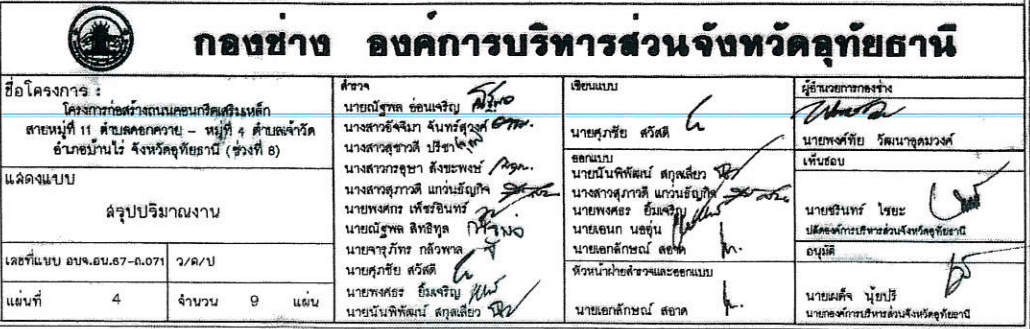 กองช่าง องค์การบริหารส่วนจังหวัดอุทัยธานี
ชื่อโครงการ :
โครงการก่อสร้างถนนคอนกรีตเสริมเหล็ก
สายหมู่ที่ 11 ตำบลคอกควาย - หมู่ที่ 4 ตำบลเจ้าวัด
อำเภอบ้านไร่ จังหวัดอุทัยธานี (ช่วงที่ 8)
แสดงแบบ
สรุปปริมาณงาน
เลขที่แบบ อบจ.อน.67-ถ.071 ว/ด/ป
แผ่นที่ 4 จำนวน 9 แผ่น
สำรวจ
นายณัฐพล อ่อนเจริญ
นางสาวอัจจิมา จันทร์สุวงศ์
นางสาวสุชาวดี ปรีชา
นางสาวกรอุษา สังขะพงษ์
นางสาวสุภาวดี แกว่นธัญกิจ
นายพงศกร เพ็ชรอินทร์
นายณัฐพล สิทธิทูล
นายจารุภัทร กลัวพาล
นายศุภชัย สวัสดี
นายพงศธร ยิ้มเจริญ
นายนันพิพัฒน์ สกุลเสียว
เขียนแบบ
นายศุภชัย สวัสดี
ออกแบบ
นายนันพิพัฒน์ สกุลเสียว
นางสาวสุภาวดี แกว่นธัญกิจ
นายพงศธร ยิ้มเจริญ
นายเอนก นอขุ่น
นายเอกลักษณ์ สอาด
หัวหน้าฝ่ายสำรวจและออกแบบ
นายเอกลักษณ์ สอาด
ผู้อำนวยการกองช่าง
นายพงศ์ทัย วัฒนาอุดมวงศ์
เห็นชอบ
นายชรินทร์ ไชยะ
ปลัดองค์การบริหารส่วนจังหวัดอุทัยธานี
อนุมัติ
นายเผด็จ นุ้ยปรี
นายกองค์การบริหารส่วนจังหวัดอุทัยธานี